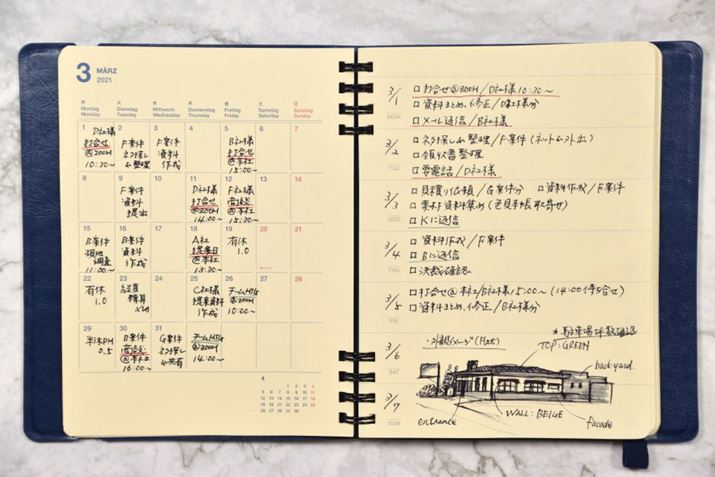 3 MÄRZ
2021
月 火 水 木 金 土 日
Montag Dienstag Mittwoch Donnerstag Freitag Samstag Sonntag
Monday Tuesday Wednesday Thursday Friday Saturday Sunday
1 2 3 4 5 6 7
D社様
打合せ
@ZOOM
10:30~
F案件
ネタ探し
&整理
F案件
資料
作成
B社様
打合せ
@本社
15:00~
8 9 10 11 12 13 14
F案件
資料
提出
D社様
打合せ
@ZOOM
14:00~
F社様
商談
@本社
15:30~
15 16 17 18 19 20 21
B案件
現地
調査
11:00~
B案件
資料
作成
A社
提案日
@本社
13:30~
有休
1.0
22 23 24 25 26 27 28
有休
1.0
経費
精算
〆切
C社様
提案資料
作成
チームMTG
@ZOOM
10:00~
29 30 31
半休PM
0.5
B案件
商談
@本社
16:00~
G案件
ネタ探し
&共有
チームMTG
@ZOOM
14:00~
4
1 2 3 4
5 6 7 8 9 10 11
12 13 14 15 16 17 18
19 20 21 22 23 24 25
26 27 28 29 30
3/1
MON
□ 打合せ@ZOOM/D社様 10:30~
□ 資料まとめ、修正/D社様分
□ メール返信/B社様
3/2
TUE
□ ネタ探し&整理/F案件(ネットムフト出)
□ 領収書整理
□ 要電話/D社様
3/3
WED
□ 見積り依頼/G案件分 □ 資料作成/F案件
□ 素材資料集め(色見本帳取寄せ)
□ Kに返信
3/4
THU
□ 資料作成/F案件
□ Bに返信
□ 決裁確認
3/5
FRI
□ 打合せ@本社/B社様 15:00~ (14:00待ち合せ)
□ 資料まとめ、修正/B社様分
3/6
SAT
*駐車場坪数確認
・外観イメージ(Flat)
TOP:GREEN
back yard.
3/7
SUN
entrance
WALL:BEIGE
facade